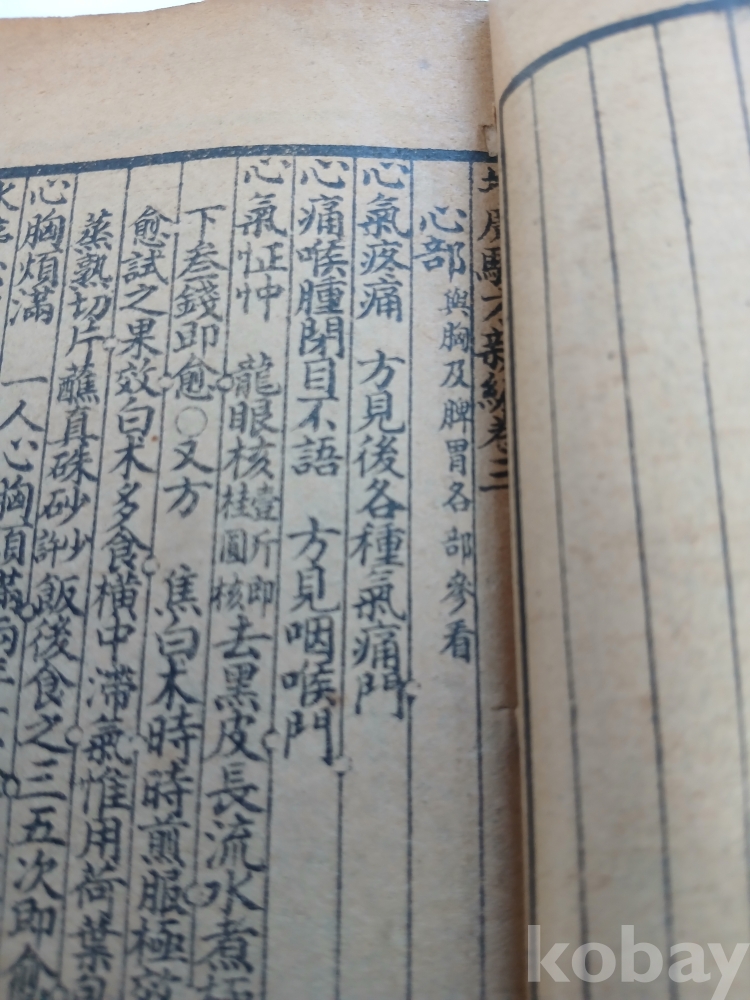 增廣驗方新編卷三
心部 與胸及脾胃各部參看
心氣疼痛 方見後各種氣痛門
心痛喉腫閉目不語 方見咽喉門
心氣怔忡 龍眼核壹斤即桂圓核去黑皮長流水煮
下叁錢即愈○又方 焦白朮時時煎服極
愈試之果效白朮多食橫中滯氣惟用荷葉
蒸熟切片蘸真硃砂少許飯後食之三五次即愈
心胸煩滿 一人心胸煩滿兩
kobay